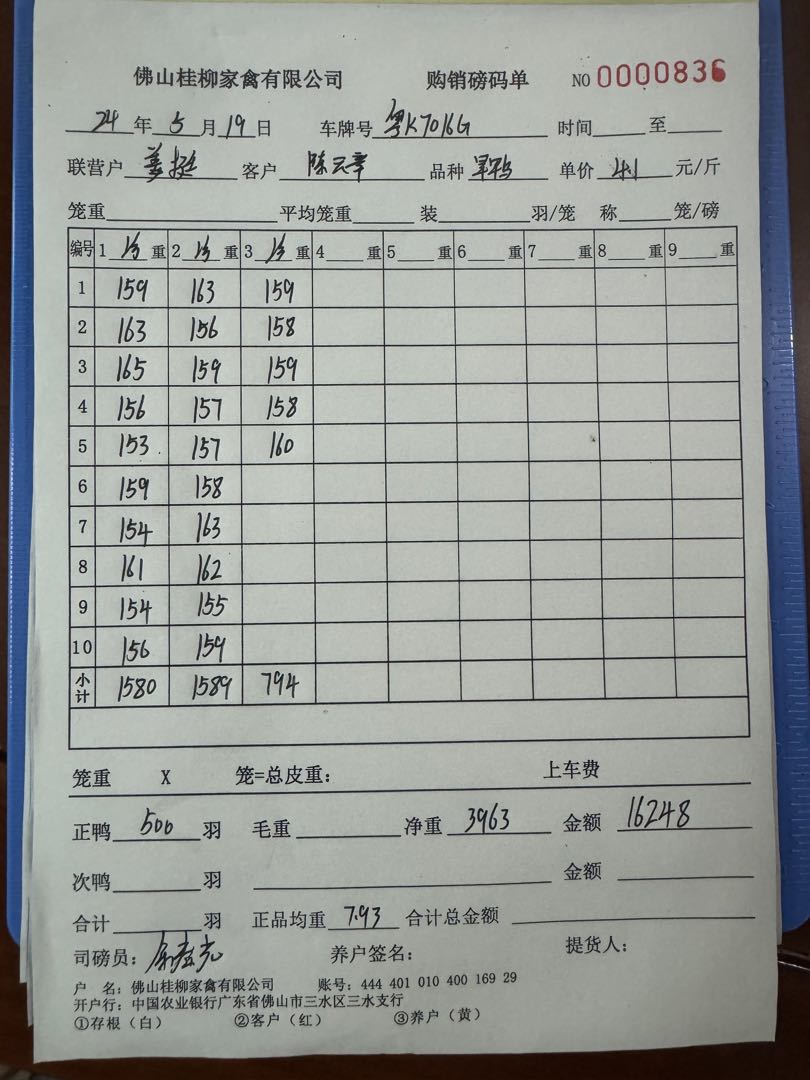 佛山桂柳家禽有限公司 购销磅码单 NO 0000836
24 年 5 月 19 日 车牌号 粤K7016G 时间 至
联营户 姜挺 客户 陈云章 品种 单价 4.1 元/斤
笼重 平均笼重 装 羽/笼 称 笼/磅
编号 1 重 2 重 3 重 4 重 5 重 6 重 7 重 8 重 9 重
1 159 163 159
2 163 156 158
3 165 159 159
4 156 157 158
5 153 157 160
6 159 158
7 154 163
8 161 162
9 154 155
10 156 159
小计 1580 1589 794
笼重 X 笼=总皮重： 上车费
正鸭 500 羽 毛重 净重 3963 金额 16248
次鸭 羽 金额
合计 羽 正品均重 7.93 合计总金额
司磅员： 养户签名： 提货人：
户 名：佛山桂柳家禽有限公司 账号：444 401 010 400 169 29
开户行：中国农业银行广东省佛山市三水区三水支行
①存根（白） ②客户（红） ③养户（黄）